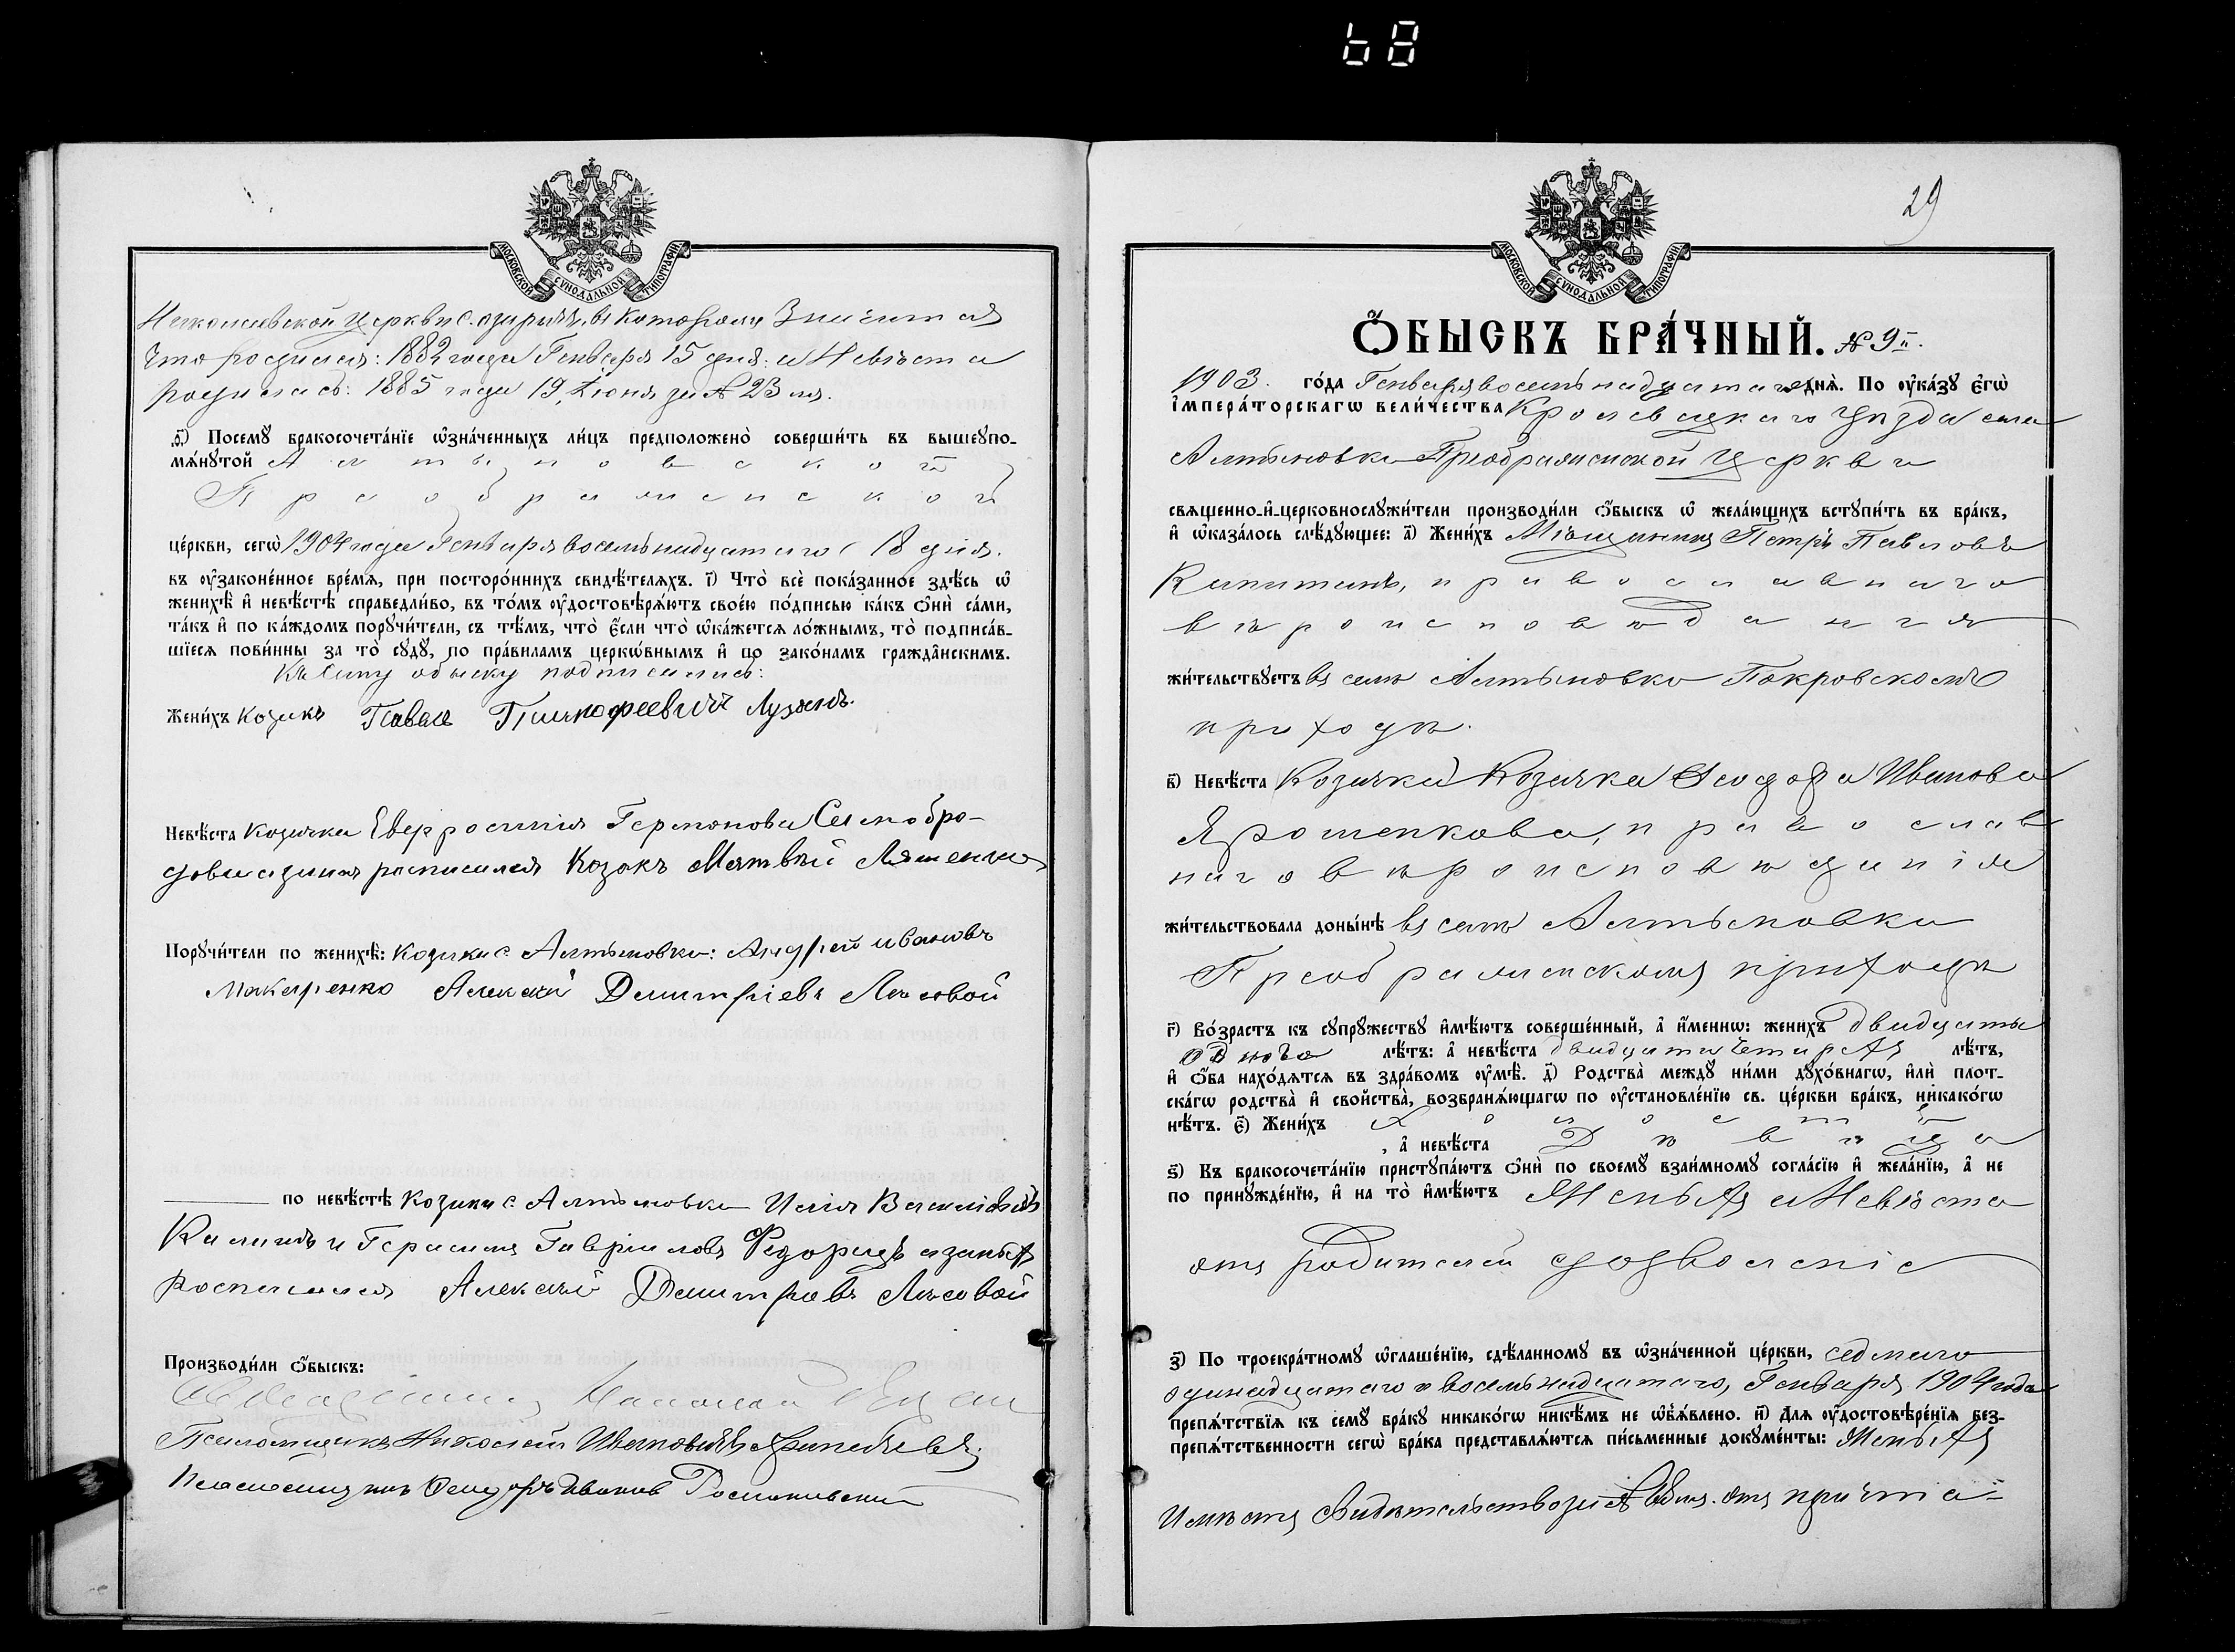 68
МОСКОВСКОЙ СѴНОДАЛЬНОЙ ТИПОГРАФІИ
Николаевской Церкви с. въ которомъ Значится
Что родился: 1882 года Генваря 15 дня: а Невѣста
родилась: 1885 года 19, Іюня за № 23 мъ.
д҃) Посемꙋ бракосочета́нїе ѡ҆зна́ченныхъ ли́цъ предположено̀ соверши́ть въ вышеꙋпо-
мѧ́нꙋтой Алтыновской
Преображенской
це́ркви, сегѡ̀ 1904 года Генваря восемьнадцатаго (18 дня.
въ ᲂу҆законе́нное вре́мѧ, при посторо́ннихъ свидѣ́телѧхъ. і҃) Что̀ всѐ пока́занное здѣ́сь ѡ҆
женихѣ̀ и҆ невѣ́стѣ справедли́во, въ то́мъ ᲂу҆достовѣрѧ́ютъ свое́ю по́дписью ка́къ ѻ҆нѝ са́ми,
та́къ и҆ по ка́ждомъ порꙋчи́тели, съ тѣ́мъ, что̀ є҆́сли что̀ ѡ҆ка́жетсѧ ло́жнымъ, то̀ подписа́в-
шїесѧ пови́нны за то̀ сꙋдꙋ̀, по пра́виламъ церко́внымъ и҆ по зако́намъ гражда̂нскимъ.
Къ Сему обыску подписались:
Жени́хъ Козакъ Павелъ Тимофеевичъ Лузанъ.
Невѣ́ста Козачка Евфросинія Германова Самобро-
росписался Козакъ Матвѣй Ляшенко
Порꙋчи́тели по женихѣ̀: Козаки с. Алтыновки: Андрей Ивановъ
Макаренко Алексѣй Димитріевъ Лѣсовой
по невѣ́стѣ Козаки с. Алтыновки Илія Василіевъ
и Герасимъ Гавріиловъ Федорецъ а за нихъ
Росписался Алексѣй Димитріевъ Лѣсовой
Производи́ли ѻ҆́быскъ:
Священникъ Николай
Псаломщикъ Николай Ивановичъ
Псаломщикъ Феодоръ Ивановъ
29
МОСКОВСКОЙ СѴНОДАЛЬНОЙ ТИПОГРАФІИ
Ѻ҆́БЫСКЪ БРА́ЧНЫЙ. № 9й.
1903. го́да Генваря восемьнадцатаго днѧ̀. По ᲂу҆ка́зꙋ є҆гѡ̀
і҆мпера́торскагѡ вели́чества Кролевецкаго Уѣзда села
Алтыновки Преображенской Церкви
свѧщенно-и҆-церковнослꙋжи́тели производи́ли ѻ҆́быскъ ѡ҆ жела́ющихъ встꙋпи́ть въ бра́къ,
и҆ ѡ҆каза́лось слѣ́дꙋющее: а҃) Жени́хъ Мѣщанинъ Петръ Павловъ
Капитанъ, православнаго
вѣроисповѣданія
жи́тельствꙋетъ въ селѣ Алтыновки Покровскомъ
приходѣ.
в҃) Невѣ́ста Козачка Козачка Феодора Иванова
Ярошенкова, православ
наго вѣроисповѣданія
жи́тельствовала доны́нѣ въ селѣ Алтыновки
Преображенскомъ приходѣ
г҃) Во́зрастъ къ сꙋпрꙋ́жествꙋ и҆мѣ́ютъ соверше́нный, а҆ и҆́меннѡ: жени́хъ двадцать
одного лѣ́тъ: а҆ невѣ́ста двадцати четырехъ лѣ́тъ,
и҆ ѻ҆́ба нахо́дѧтсѧ въ здра́вомъ ᲂу҆мѣ̀. д҃) Родства̀ междꙋ̀ ни́ми дꙋхо́внагѡ, и҆лѝ плот-
ска́гѡ родства̀ и҆ свойства̀, возбранѧ́ющагѡ по ᲂу҆становле́нїю св. це́ркви бра́къ, никако́гѡ
нѣ́тъ. є҃) Жени́хъ Холостъ
, а҆ невѣ́ста Дѣвица
ѕ҃) Къ бракосочета́нїю пристꙋпа́ютъ ѻ҆нѝ по своемꙋ̀ взаи́мномꙋ согла́сїю и҆ жела́нїю, а҆ не
по принꙋжде́нїю, и҆ на то̀ и҆мѣ́ютъ Женихъ и Невѣста
отъ родителей дозволеніе
з҃) По троекра́тномꙋ ѡ҆глаше́нїю, сдѣ́ланномꙋ въ ѡ҆зна́ченной це́ркви, седмаго
одинадцатаго и восемьнадцатаго, Генваря 1904 года
препѧ́тствїѧ къ семꙋ̀ бра́кꙋ никако́гѡ никѣ́мъ не ѡ҆б̾ѧ́влено. и҃) Длѧ ᲂу҆достовѣре́нїѧ без-
препѧ́тственности сегѡ̀ бра́ка представлѧ́ютсѧ пи́сьменные докꙋме́нты: Женихъ
Имѣетъ Свидѣтельство за № отъ причта